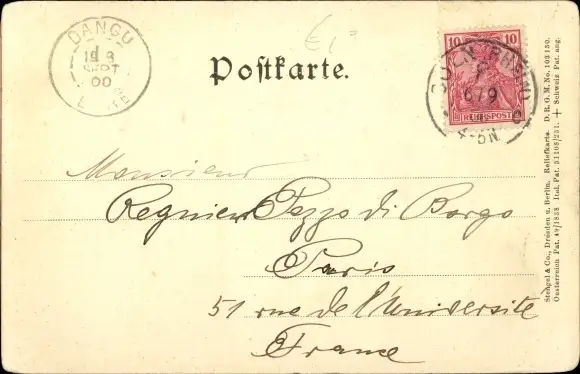 DANGU
SEPT
00
Postkarte.
10
10
REICHSPOST
CÖLN
6/7 9
4-5N.
Monsieur
Regnier Pozzo di Borgo
Paris
51 rue de l'Université
France
Stengel & Co., Dresden u. Berlin. Reliefkarte. D. R. G. M. No. 102130.
Oesterreich Pat. 49/1838. Ital. Pat. 51166/251. + Schweiz Pat. ang.